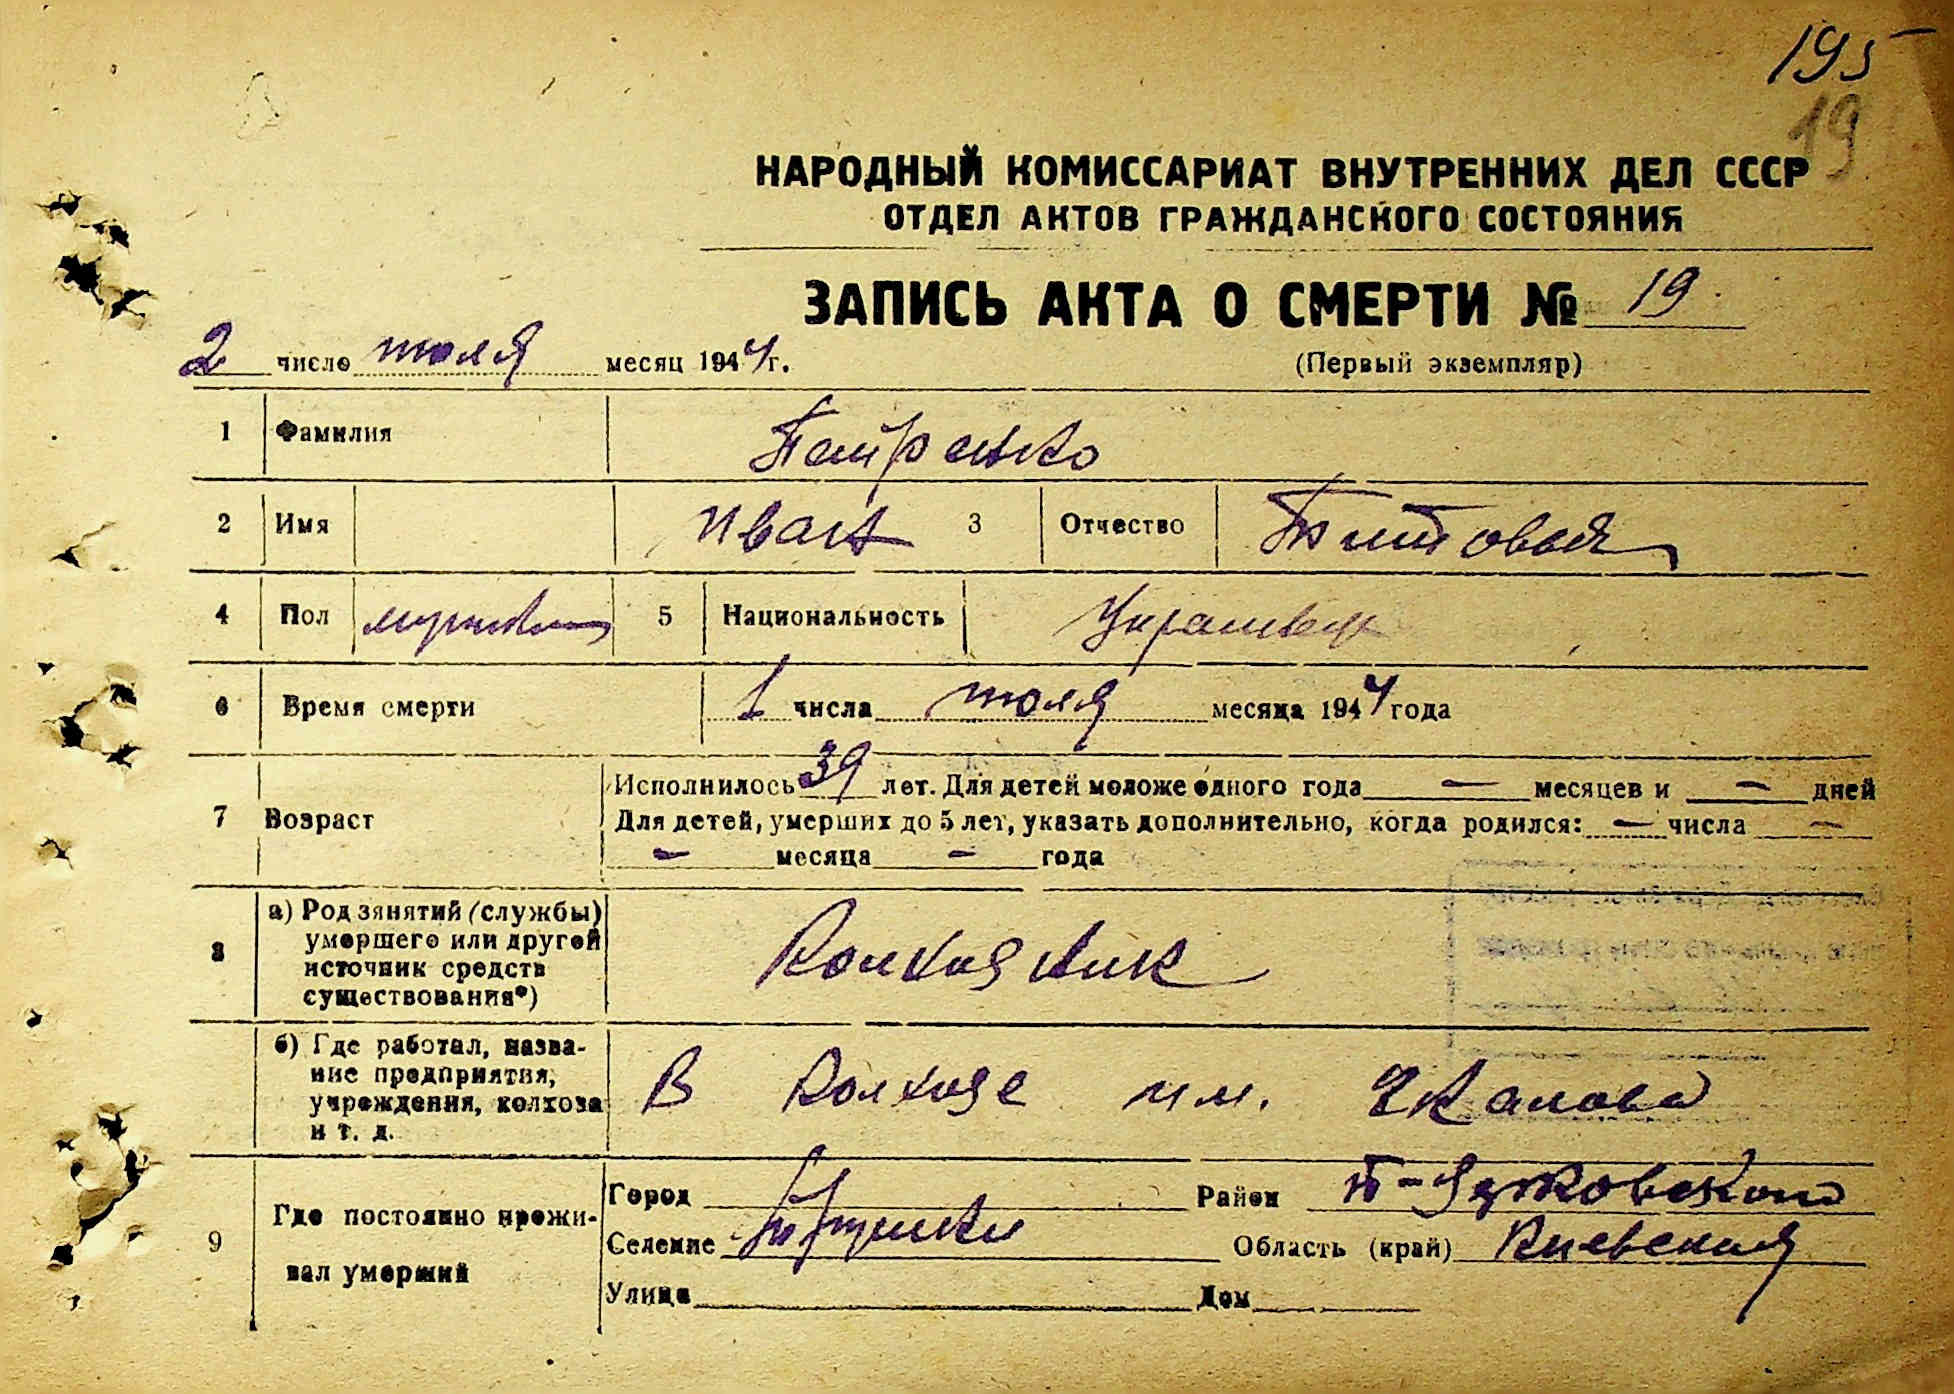 195
19
НАРОДНЫЙ КОМИССАРИАТ ВНУТРЕННИХ ДЕЛ СССР
ОТДЕЛ АКТОВ ГРАЖДАНСКОГО СОСТОЯНИЯ
ЗАПИСЬ АКТА О СМЕРТИ № 19
2 число июля месяц 1944 г.
(Первый экземпляр)
1 Фамилия Петренко
2 Имя Иван 3 Отчество Титович
4 Пол мужской 5 Национальность Украинец
6 Время смерти 1 числа июля месяца 1944 года
7 Возраст Исполнилось 39 лет. Для детей моложе одного года — месяцев и — дней
Для детей, умерших до 5 лет, указать дополнительно, когда родился: — числа —
— месяца — года
8 а) Род занятий (службы) умершего или другой источник средств существования*) Колхозник
б) Где работал, название предприятия, учреждения, колхоза и т. д. В колхозе им. Чкалова
9 Где постоянно проживал умерший
Город Район
Селение Область (край) Киевская
Улица Дом